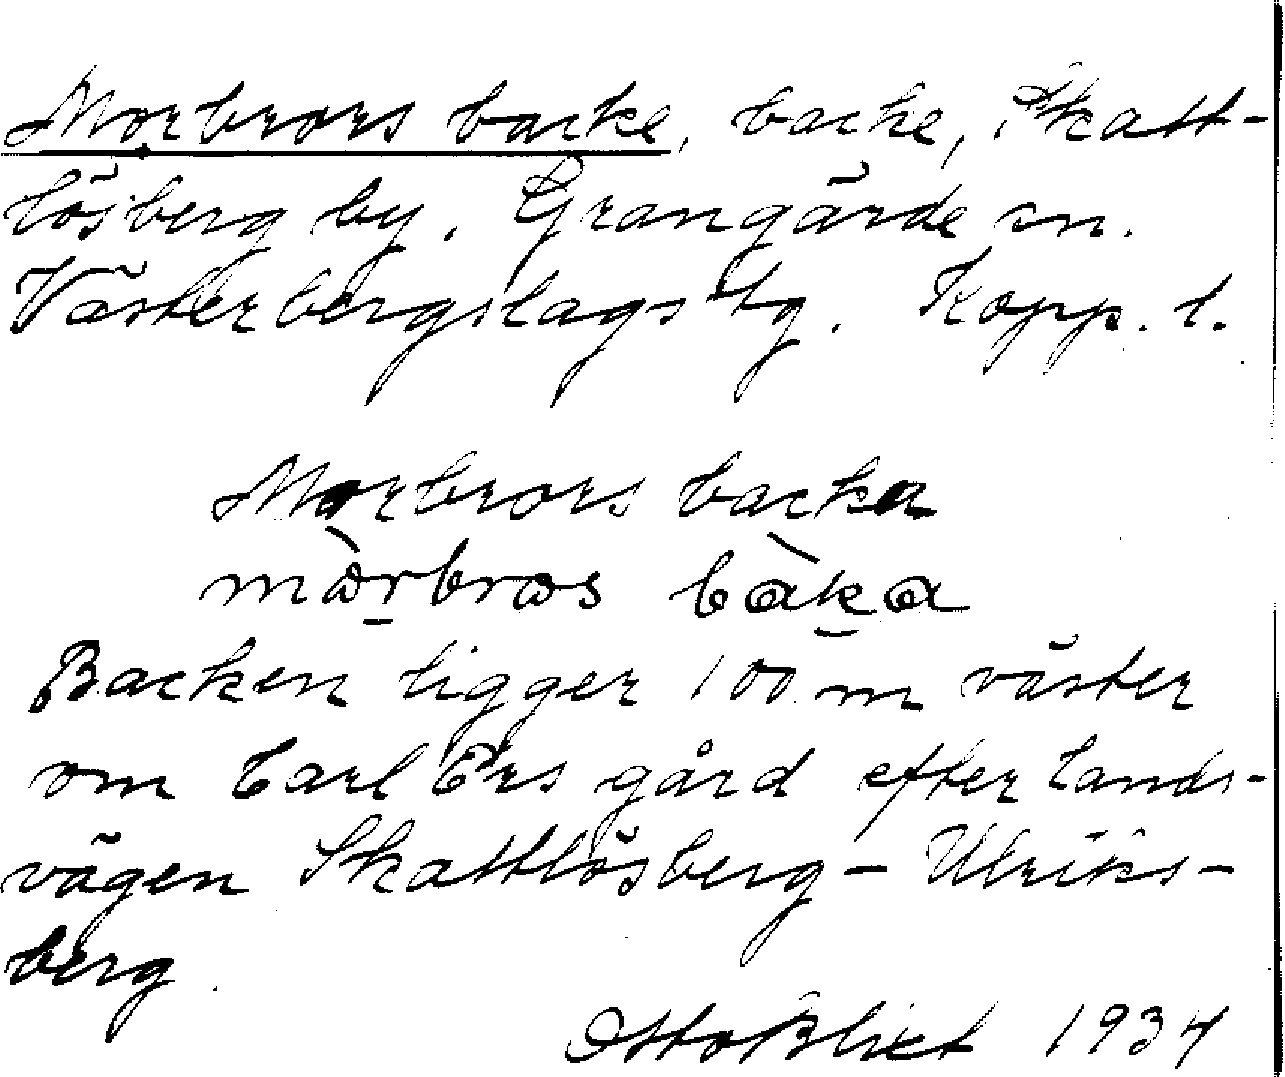 Morbrors backe, backe, Skatt-
lösberg by. Grangärde sn.
Västerbergslags tg. Kopp. l.
Morbrors backa
mòrbros bàka
Backen ligger 100 m väster
om Carl Ers gård efter lands-
vägen Skattlösberg - Ulriks-
berg.
Otto Blixt 1934